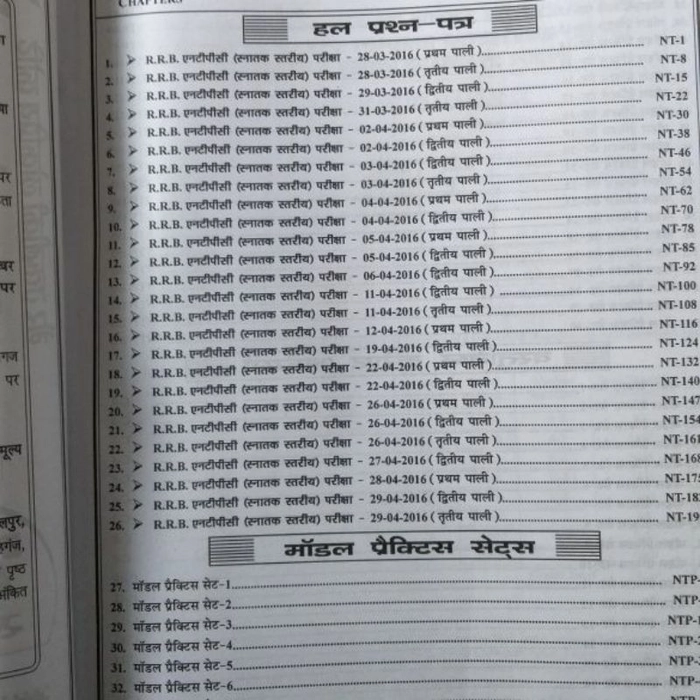 CHAPTERS
हल प्रश्न-पत्र
1. ➢ R.R.B. एनटीपीसी (स्नातक स्तरीय) परीक्षा - 28-03-2016 ( प्रथम पाली )..... NT-1
2. ➢ R.R.B. एनटीपीसी (स्नातक स्तरीय) परीक्षा - 28-03-2016 ( तृतीय पाली )..... NT-8
3. ➢ R.R.B. एनटीपीसी (स्नातक स्तरीय) परीक्षा - 29-03-2016 ( द्वितीय पाली )..... NT-15
4. ➢ R.R.B. एनटीपीसी (स्नातक स्तरीय) परीक्षा - 31-03-2016 ( तृतीय पाली )..... NT-22
5. ➢ R.R.B. एनटीपीसी (स्नातक स्तरीय) परीक्षा - 02-04-2016 ( प्रथम पाली )..... NT-30
6. ➢ R.R.B. एनटीपीसी (स्नातक स्तरीय) परीक्षा - 02-04-2016 ( द्वितीय पाली )..... NT-38
7. ➢ R.R.B. एनटीपीसी (स्नातक स्तरीय) परीक्षा - 03-04-2016 ( द्वितीय पाली )..... NT-46
8. ➢ R.R.B. एनटीपीसी (स्नातक स्तरीय) परीक्षा - 03-04-2016 ( तृतीय पाली )..... NT-54
9. ➢ R.R.B. एनटीपीसी (स्नातक स्तरीय) परीक्षा - 04-04-2016 ( प्रथम पाली )..... NT-62
10. ➢ R.R.B. एनटीपीसी (स्नातक स्तरीय) परीक्षा - 04-04-2016 ( द्वितीय पाली )..... NT-70
11. ➢ R.R.B. एनटीपीसी (स्नातक स्तरीय) परीक्षा - 05-04-2016 ( प्रथम पाली )..... NT-78
12. ➢ R.R.B. एनटीपीसी (स्नातक स्तरीय) परीक्षा - 05-04-2016 ( द्वितीय पाली )..... NT-85
13. ➢ R.R.B. एनटीपीसी (स्नातक स्तरीय) परीक्षा - 06-04-2016 ( द्वितीय पाली )..... NT-92
14. ➢ R.R.B. एनटीपीसी (स्नातक स्तरीय) परीक्षा - 11-04-2016 ( द्वितीय पाली )..... NT-100
15. ➢ R.R.B. एनटीपीसी (स्नातक स्तरीय) परीक्षा - 11-04-2016 ( तृतीय पाली )..... NT-108
16. ➢ R.R.B. एनटीपीसी (स्नातक स्तरीय) परीक्षा - 12-04-2016 ( प्रथम पाली )..... NT-116
17. ➢ R.R.B. एनटीपीसी (स्नातक स्तरीय) परीक्षा - 19-04-2016 ( द्वितीय पाली )..... NT-124
18. ➢ R.R.B. एनटीपीसी (स्नातक स्तरीय) परीक्षा - 22-04-2016 ( प्रथम पाली )..... NT-132
19. ➢ R.R.B. एनटीपीसी (स्नातक स्तरीय) परीक्षा - 22-04-2016 ( द्वितीय पाली )..... NT-140
20. ➢ R.R.B. एनटीपीसी (स्नातक स्तरीय) परीक्षा - 26-04-2016 ( प्रथम पाली )..... NT-147
21. ➢ R.R.B. एनटीपीसी (स्नातक स्तरीय) परीक्षा - 26-04-2016 ( द्वितीय पाली )..... NT-154
22. ➢ R.R.B. एनटीपीसी (स्नातक स्तरीय) परीक्षा - 26-04-2016 ( तृतीय पाली )..... NT-161
23. ➢ R.R.B. एनटीपीसी (स्नातक स्तरीय) परीक्षा - 27-04-2016 ( द्वितीय पाली )..... NT-168
24. ➢ R.R.B. एनटीपीसी (स्नातक स्तरीय) परीक्षा - 28-04-2016 ( प्रथम पाली )..... NT-175
25. ➢ R.R.B. एनटीपीसी (स्नातक स्तरीय) परीक्षा - 29-04-2016 ( द्वितीय पाली )..... NT-18
26. ➢ R.R.B. एनटीपीसी (स्नातक स्तरीय) परीक्षा - 29-04-2016 ( तृतीय पाली )..... NT-19
मॉडल प्रैक्टिस सेट्स
27. मॉडल प्रैक्टिस सेट-1..... NTP-
28. मॉडल प्रैक्टिस सेट-2..... NTP-
29. मॉडल प्रैक्टिस सेट-3..... NTP-1
30. मॉडल प्रैक्टिस सेट-4..... NTP-2
31. मॉडल प्रैक्टिस सेट-5..... NTP-
32. मॉडल प्रैक्टिस सेट-6..... NTP-